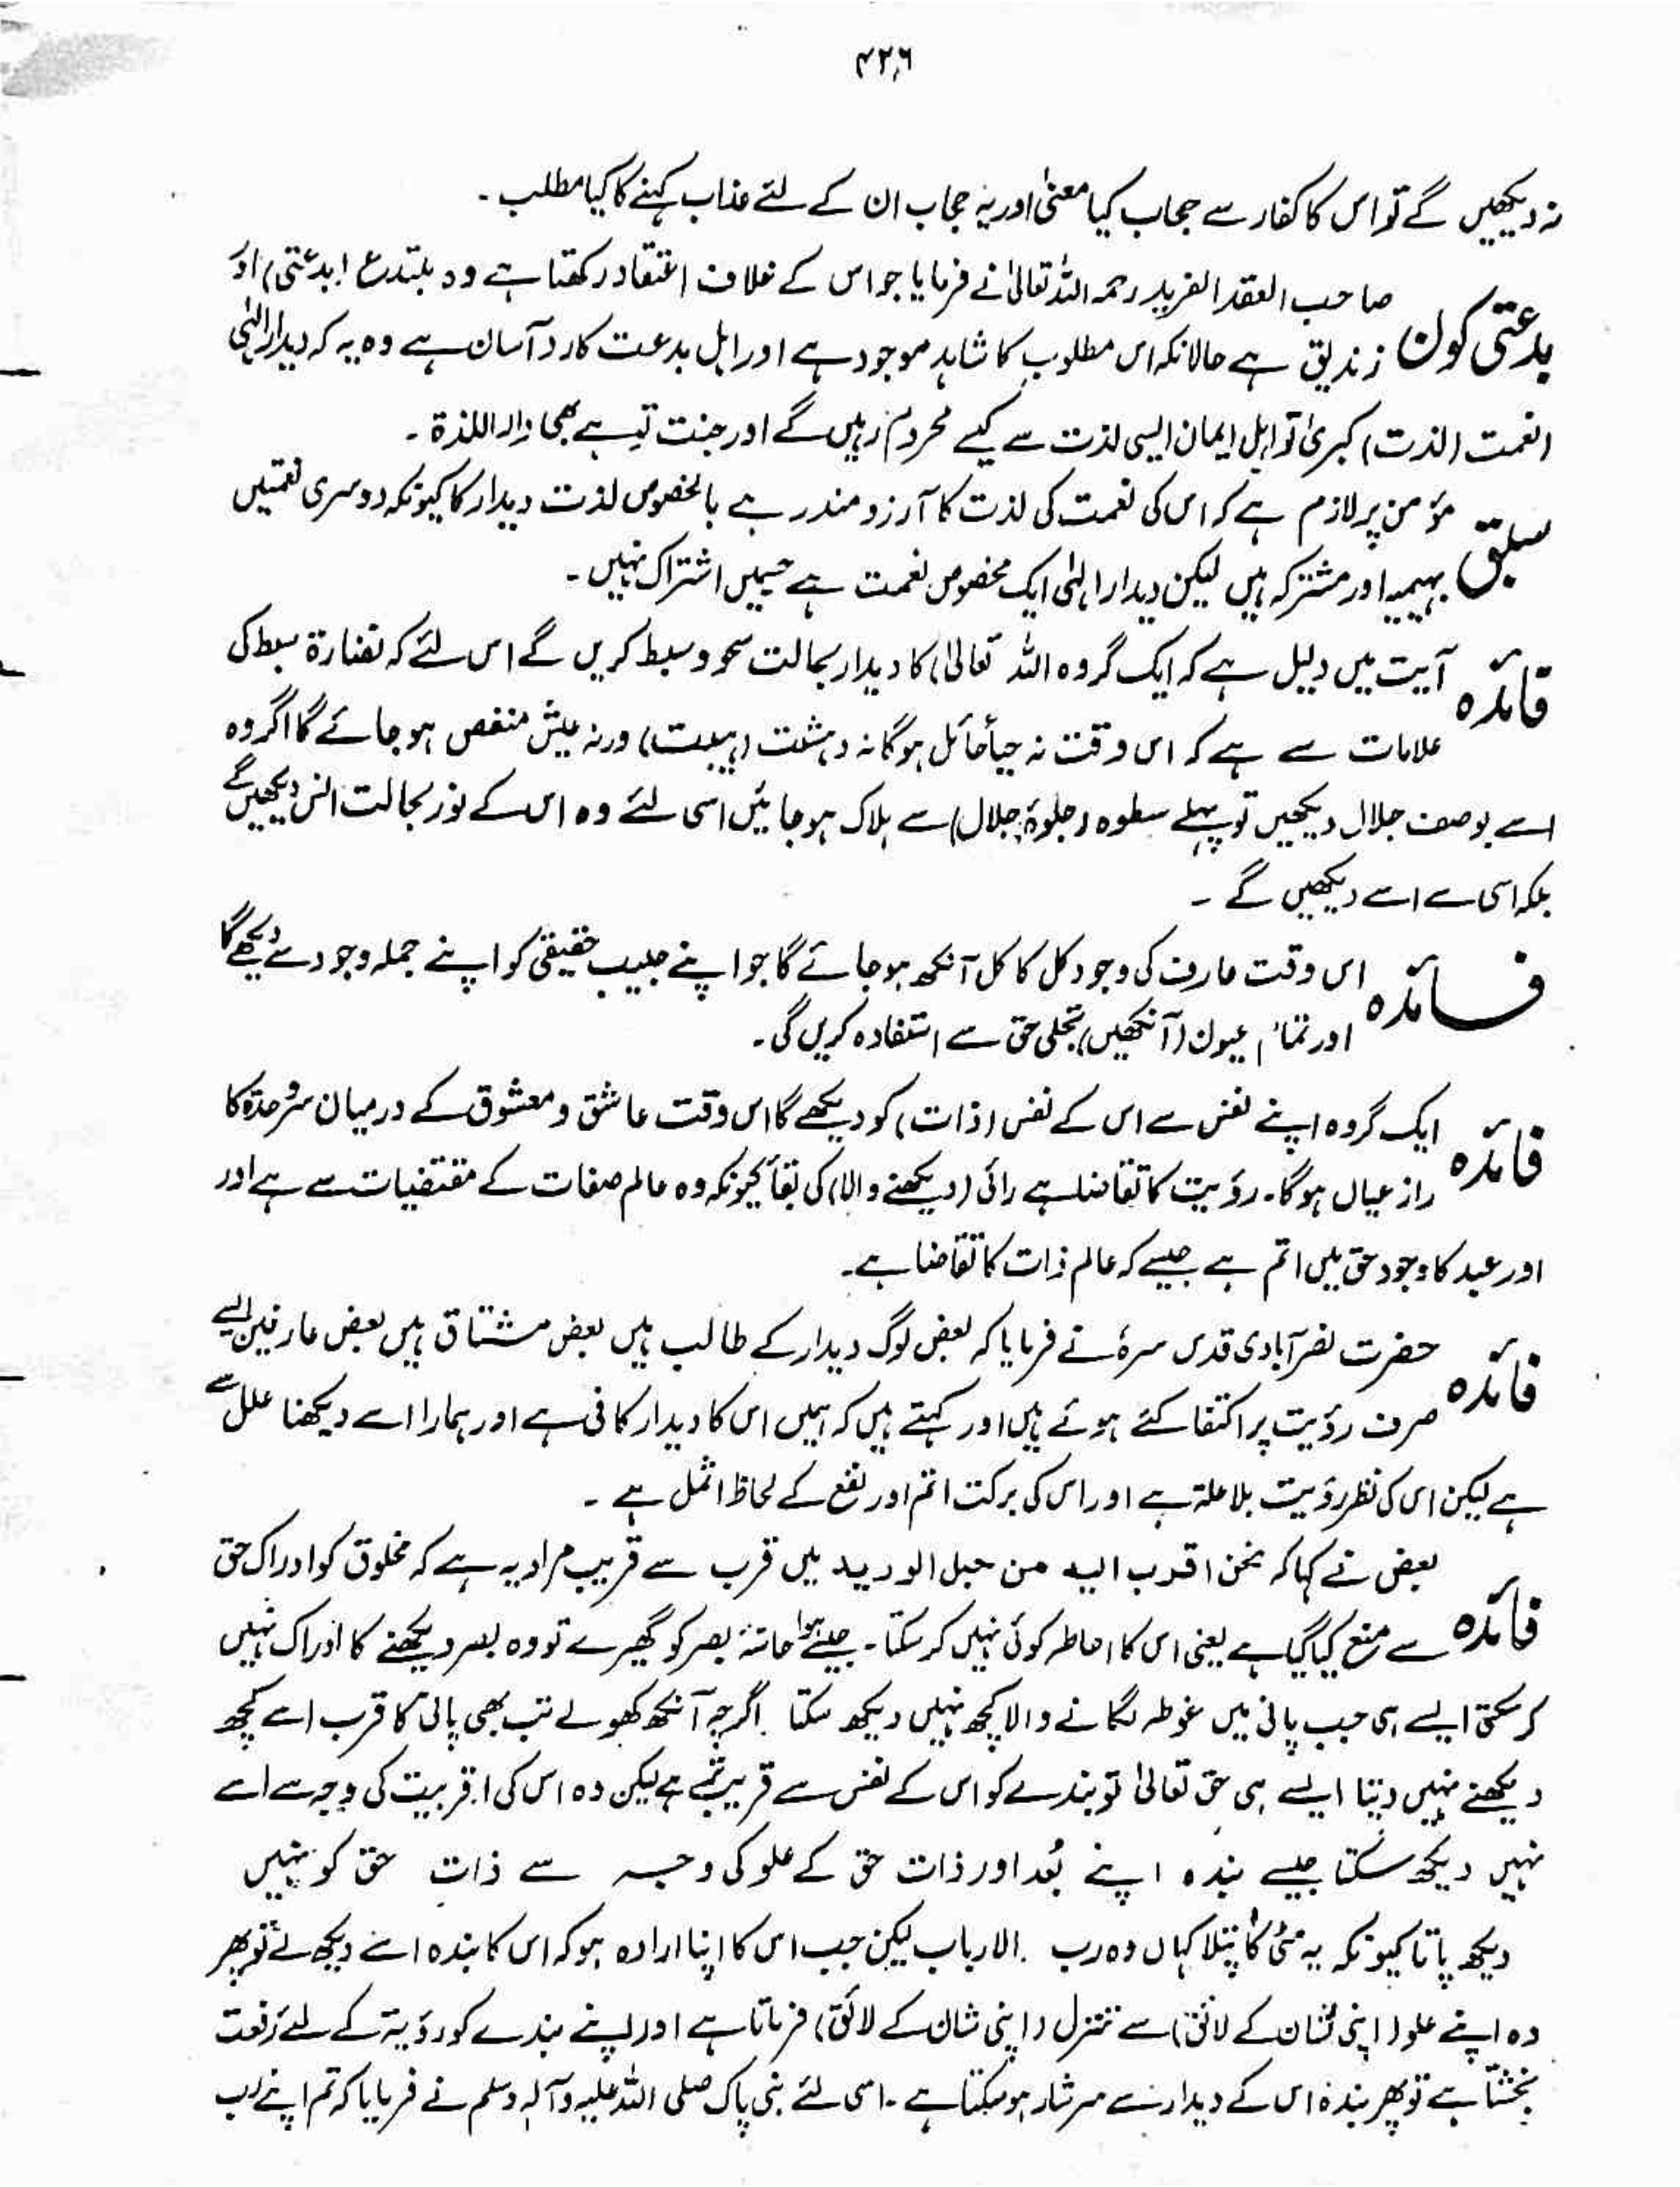 ۴۲۶
نہ دیکھیں گے تو اس کا کفار سے حجاب کیا معنیٰ اور یہ حجاب ان کے لئے عذاب کہنے کا کیا مطلب ۔
بدعتی کون
صاحب العقد الفرید رحمہ اللہ تعالیٰ نے فرمایا جو اس کے خلاف اعتقاد رکھتا ہے وہ مبتدع (بدعتی) اور
زندیق ہے حالانکہ اس مطلوب کا شاہد موجود ہے اور اہل بدعت کا رد آسان ہے وہ یہ کہ دیدار الٰہی
(نعمت (لذت) کبریٰ تو اہل ایمان ایسی لذت سے کیسے محروم رہیں گے اور جنت تو ہے بھی دار اللذۃ ۔
سبق
مؤمن پر لازم ہے کہ اس کی نعمت کی لذت کا آرزو مند رہے بالخصوص لذت دیدار کا کیونکہ دوسری نعمتیں
بہیمیہ اور مشترکہ ہیں لیکن دیدار الٰہی ایک مخصوص نعمت ہے جسمیں اشتراک نہیں ۔
فائدہ
آیت میں دلیل ہے کہ ایک گروہ اللہ تعالیٰ) کا دیدار بحالت سحو و بسط کریں گے اس لئے کہ نضارۃ بسط کی
علامات سے ہے کہ اس وقت نہ حیأ حائل ہو گا نہ دہشت (ہیبت) ورنہ عیش منغص ہو جائے گا اگر وہ
اسے بوصف جلال دیکھیں تو پہلے سطوہ (جلوۂ جلال) سے ہلاک ہو جائیں اسی لئے وہ اس کے نور بحالت انس دیکھیں گے
بلکہ اسی سے اسے دیکھیں گے ۔
فائدہ
اس وقت عارف کی وجود کل کا کل آنکھ ہو جائے گا جو اپنے حبیب حقیقی کو اپنے جملہ وجود سے دیکھے گا
اور تمام عیون (آنکھیں) تجلی حق سے استفادہ کریں گی ۔
فائدہ
ایک گروہ اپنے نفس سے اس کے نفس (ذات) کو دیکھے گا اس وقت عاشق و معشوق کے درمیان سر وحدۃ کا
راز عیاں ہو گا ۔ رؤیت کا تقاضا ہے رائی (دیکھنے والا) کی بقأ کیونکہ وہ عالم صفات کے مقتضیات سے ہے اور
اور عبد کا وجود حق میں اتم ہے جیسے کہ عالم ذات کا تقاضا ہے ۔
فائدہ
حضرت نصرآبادی قدس سرہٗ نے فرمایا کہ بعض لوگ دیدار کے طالب ہیں بعض مشتاق ہیں بعض عارفین ایسے
صرف رؤیت پر اکتفا کئے ہوئے ہیں اور کہتے ہیں کہ ہمیں اس کا دیدار کافی ہے اور ہمارا اسے دیکھنا علل سے
ہے لیکن اس کی نظر رؤیت بلا علۃ ہے اور اس کی برکت اتم اور نفع کے لحاظ اشمل ہے ۔
فائدہ
بعض نے کہا کہ نحن اقرب الیہ من حبل الورید میں قرب سے قریب مراد یہ ہے کہ مخلوق کو ادراک حق
سے منع کیا گیا ہے یعنی اس کا احاطہ کوئی نہیں کر سکتا ۔ جیسے ہوا حاسۂ بصر کو گھیرے تو وہ بصر دیکھنے کا ادراک نہیں
کر سکتی ایسے ہی جب پانی میں غوطہ لگانے والا کچھ نہیں دیکھ سکتا اگرچہ آنکھ کھولے تب بھی پانی کا قرب اسے کچھ
دیکھنے نہیں دیتا ایسے ہی حق تعالیٰ تو بندے کو اس کے نفس سے قریب ہے لیکن وہ اس کی اقربیت کی وجہ سے اسے
نہیں دیکھ سکتا جیسے بندہ اپنے بُعد اور ذات حق کے علو کی وجہ سے ذات حق کو نہیں
دیکھ پاتا کیونکہ یہ مٹی کا پتلا کہاں وہ رب الارباب لیکن جب اس کا اپنا ارادہ ہو کہ اس کا بندہ اسے دیکھ لے تو پھر
وہ اپنے علو (اپنی شان کے لائق) سے تنزل (اپنی شان کے لائق) فرماتا ہے اور اپنے بندے کو رؤیۃ کے لئے رفعت
بخشتا ہے تو پھر بندہ اس کے دیدار سے سرشار ہو سکتا ہے ۔ اسی لئے نبی پاک صلی اللہ علیہ وآلہٖ وسلم نے فرمایا کہ تم اپنے رب